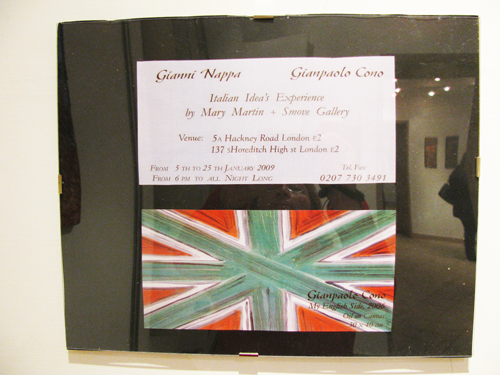 Gianni Nappa Gianpaolo Cono
Italian Idea's Experience
by Mary Martin + Smore Gallery
Venue: 5A Hackney Road London E2
137 sHoreditch High st London E2
From 5 th to 25 th January 2009 Tel Fax
From 6 pm to all Night Long 0207 730 3491
Gianpaolo Cono
My English Side, 2006
Oil on Canvas
30 x 40 cm